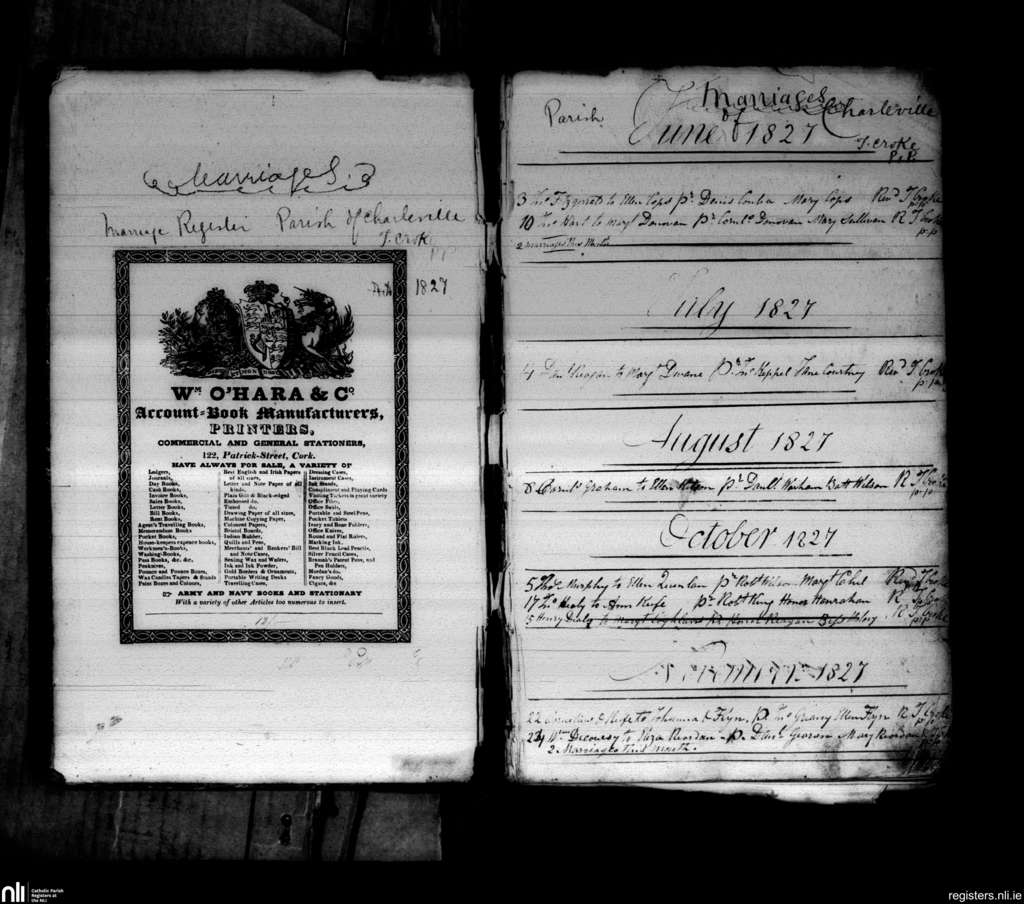 Marriages
Marriage Register Parish of Charleville
T. Croke
PP
1827
MON
Wm O'HARA & Co
Account=Book Manufacturers,
PRINTERS,
COMMERCIAL AND GENERAL STATIONERS,
122, Patrick-Street, Cork.
HAVE ALWAYS FOR SALE, A VARIETY OF
Ledgers,
Journals,
Day Books,
Cash Books,
Invoice Books,
Sales Books,
Letter Books,
Bill Books,
Rent Books,
Agent's Travelling Books,
Memorandum Books
Pocket Books,
House-keepers expence books,
Workmen's-Books,
Washing-Books,
Pass Books, &c. &c.
Penknives,
Pounce and Pounce Boxes,
Wax Candles Tapers & Stands
Paint Boxes and Colours,
Best English and Irish Papers
of all sizes,
Letter and Note Paper of all
kinds,
Plain Gilt & Black-edged
Embossed do.
Tinted do.
Drawing Paper of all sizes,
Machine Copying Paper,
Coloured Papers,
Bristol Boards,
Indian Rubber,
Quills and Pens,
Merchants' and Bankers' Bill
and Note Cases,
Sealing Wax and Wafers,
Ink and Ink Powder,
Gold Borders & Ornaments,
Portable Writing Desks
Travelling Cases,
Dressing Cases,
Instrument Cases,
Ink Stands,
Compliment and Playing Cards
Visiting Tickets in great variety
Office Files,
Office Seals,
Portable and Steel Pens,
Pocket Tablets
Ivory and Bone Folders,
Office Knives,
Round and Flat Rulers,
Marking Ink,
Best Black Lead Pencils,
Silver Pencil Cases,
Bramah's Patent Pens, and
Pen Holders,
Mordan's do.
Fancy Goods,
Types, &c
ARMY AND NAVY BOOKS AND STATIONARY
With a variety of other Articles too numerous to insert.
Marriages
Parish of Charleville
June 1827
T. Croke
P.P.
3 Jno Fitzgerald to Ellen Cops pr Denis Mary Cops Revd T Croke
p.p
10 Jno Hart to Mary Donovan pr Corns Donovan Mary Sullivan R T Croke
p.p
2 marriages this Month
July 1827
4 Danl Reagan to Mary Dwane pr Jno Keppel Jane Courtney Revd T Croke
p.p
August 1827
8 Graham to Ellen pr Danll Batt Wilson R T Croke
p.p
October 1827
5 Murphy to Ellen Quinlan pr Robt Wilson Mary Cahil Revd T Croke
17 Jno Healy to Ann Kife pr Robt King Honor Hanrahan R T Croke
p.p
5 Henry Healy to Mary pr Reagan R T Croke
p.p
1827
22 Cornelius O Keife to Johanna O Flyn. pr Jno Ellen Flyn R T Croke
p.p
24 Wm Decourcy to Eliza Riordan pr Danl Mary Riordan
2 Marriages this month.
nli
Catholic Parish
Registers at
the NLI
registers.nli.ie